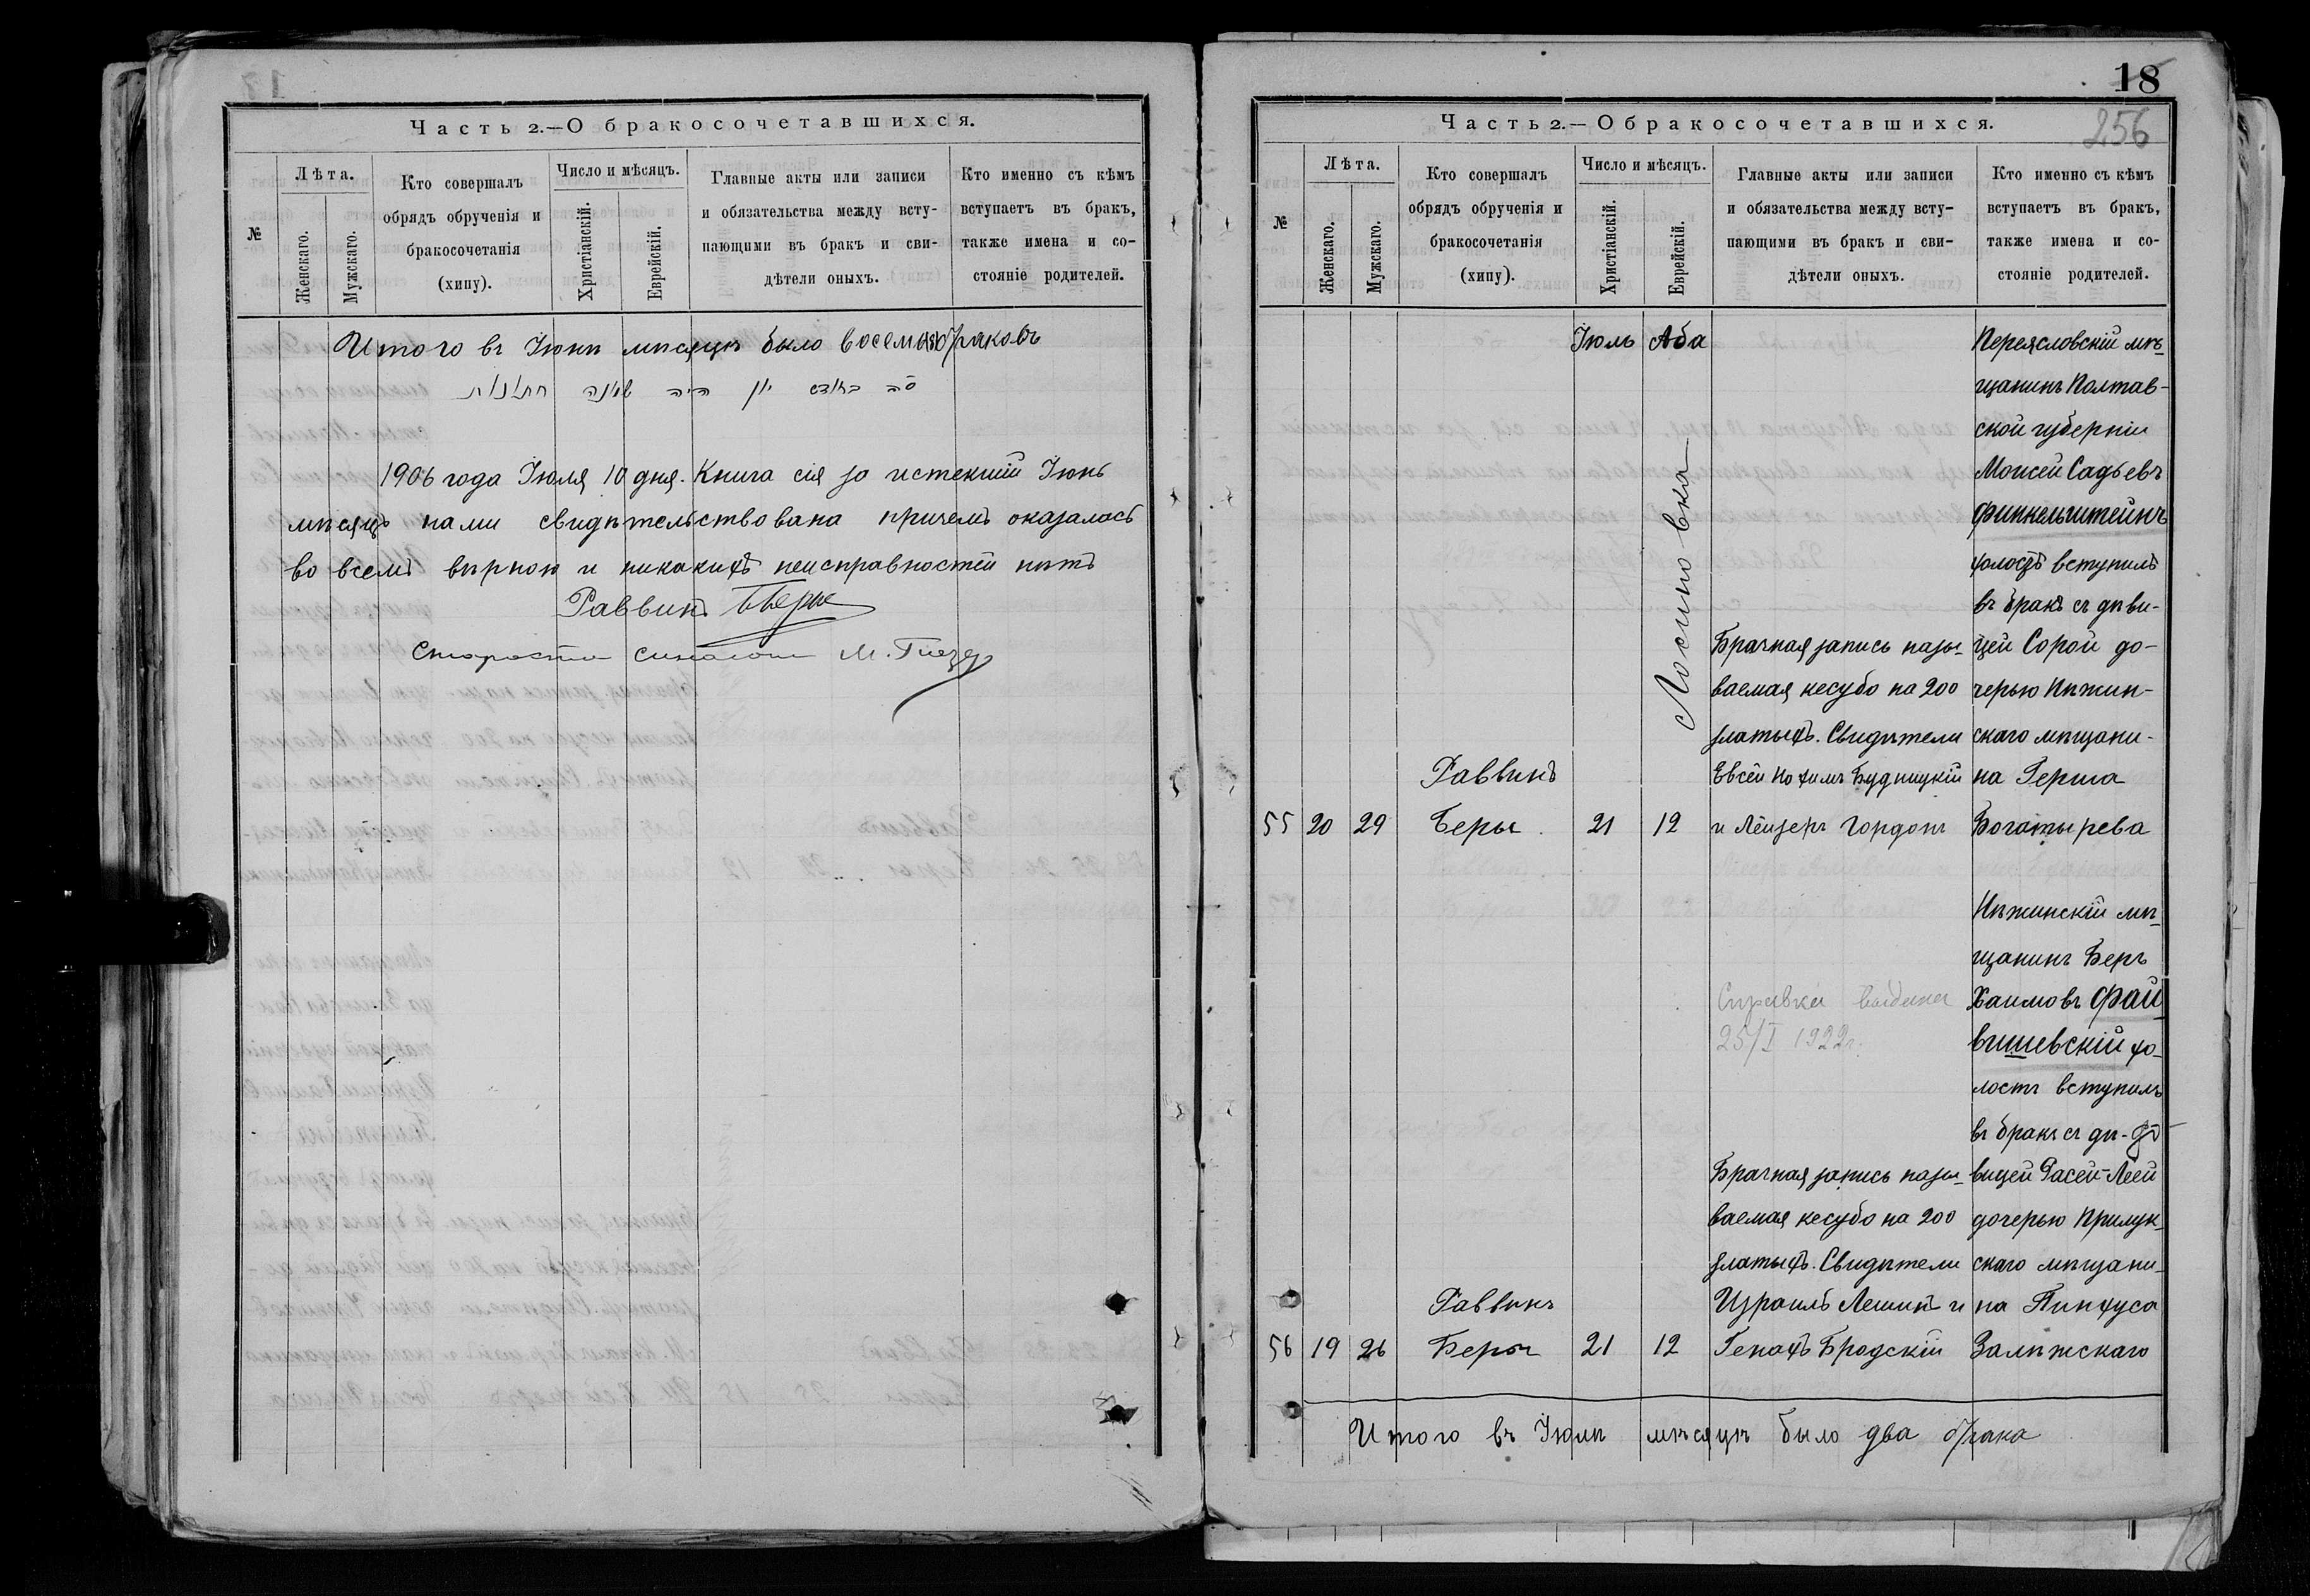 Часть 2.—О бракосочетавшихся.
№
Лѣта.
Женскаго.
Мужскаго.
Кто совершалъ
обрядъ обрученія и
бракосочетанія
(хипу).
Число и мѣсяцъ.
Христіанскій.
Еврейскій.
Главные акты или записи
и обязательства между всту-
пающими въ бракъ и сви-
дѣтели оныхъ.
Кто именно съ кѣмъ
вступаетъ въ бракъ,
также имена и со-
стояніе родителей.
Итого въ Іюнѣ мѣсяцѣ было восемь браковъ
1906 года Іюля 10 дня. Книга сія за истекшій Іюнь
мѣсяцъ нами свидѣтельствована причемъ оказалось
во всемъ вѣрною и никакихъ неисправностей нѣтъ
Раввинъ
Староста М.
18
256
Часть 2.—О бракосочетавшихся.
№
Лѣта.
Женскаго.
Мужскаго.
Кто совершалъ
обрядъ обрученія и
бракосочетанія
(хипу).
Число и мѣсяцъ.
Христіанскій.
Еврейскій.
Главные акты или записи
и обязательства между всту-
пающими въ бракъ и сви-
дѣтели оныхъ.
Кто именно съ кѣмъ
вступаетъ въ бракъ,
также имена и со-
стояніе родителей.
Іюль Аба
Лосиновка
Переясловскій мѣ-
щанинъ Полтав-
ской губерніи
Моисей Садьевъ
Финкельштейнъ
холостъ вступилъ
въ бракъ съ дѣви-
цей Сорой до-
черью Нѣжин-
скаго мѣщани-
на Герша
Богатырева
Брачная запись назы-
ваемая кесубо на 200
златыхъ. Свидѣтели
Евсей Нохимъ Будницкій
и Лейзеръ Гордонъ
Раввинъ
55 20 29 Беры 21 12
Нѣжинскій мѣ-
щанинъ Беръ
Хаимовъ Фай-
вишевскій хо-
лостъ вступилъ
въ бракъ съ дѣ-
вицей Расей-Леей
дочерью Прилук-
скаго мѣщани-
на Пинхуса
Залѣжскаго
Справка выдана
25/I 1922г.
Брачная запись назы-
ваемая кесубо на 200
златыхъ. Свидѣтели
Израиль Лешинъ и
Генахъ Бродскій
Раввинъ
56 19 26 Беры 21 12
Итого въ Іюлѣ мѣсяцѣ было два брака